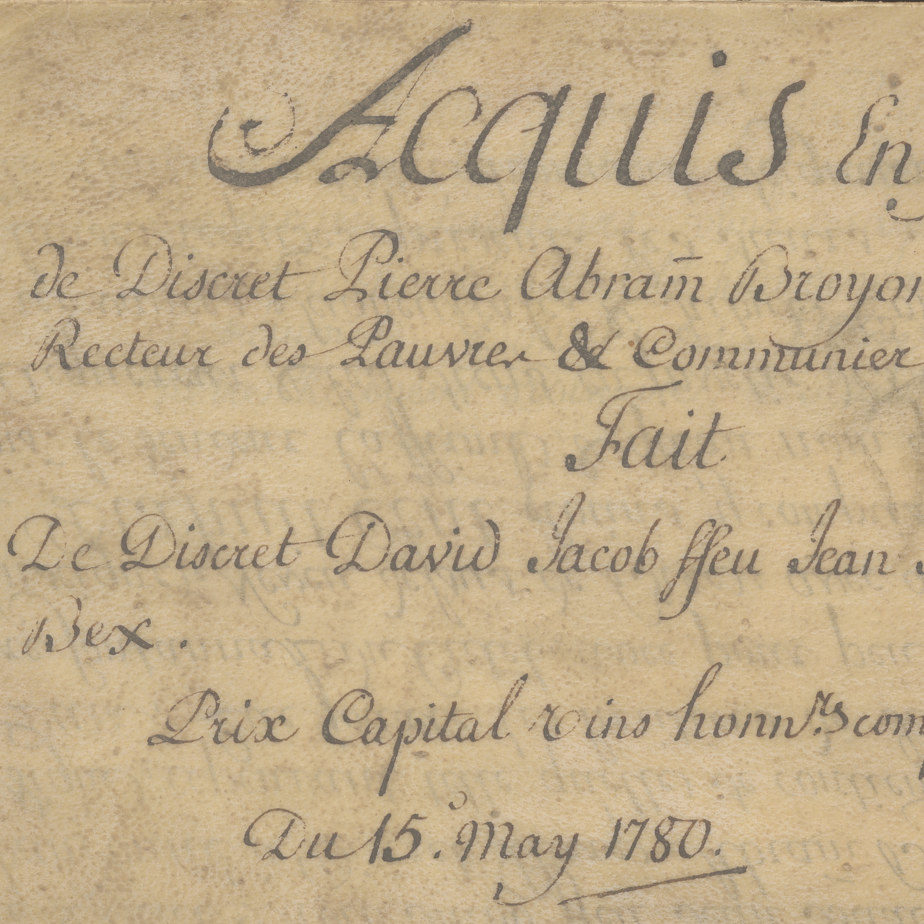 Acquis En
de Discret Pierre Abram̅ Broyon
Recteur des Pauvres & Communier
Fait
De Discret David Jacob ffeu Jean
Bex.
Prix Capital vins honn.rs com
Du 15.e May 1780.